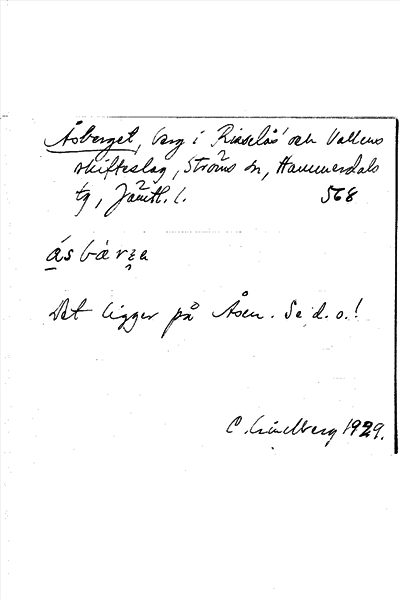 Åsberget, berg i Risselås' och Vallens
skifteslag, Ströms sn, Hammerdals
tg, Jämtl. l. 568
ásbárza
Det ligger på Åsen. Se d. o.!
C. Lindberg 1929.